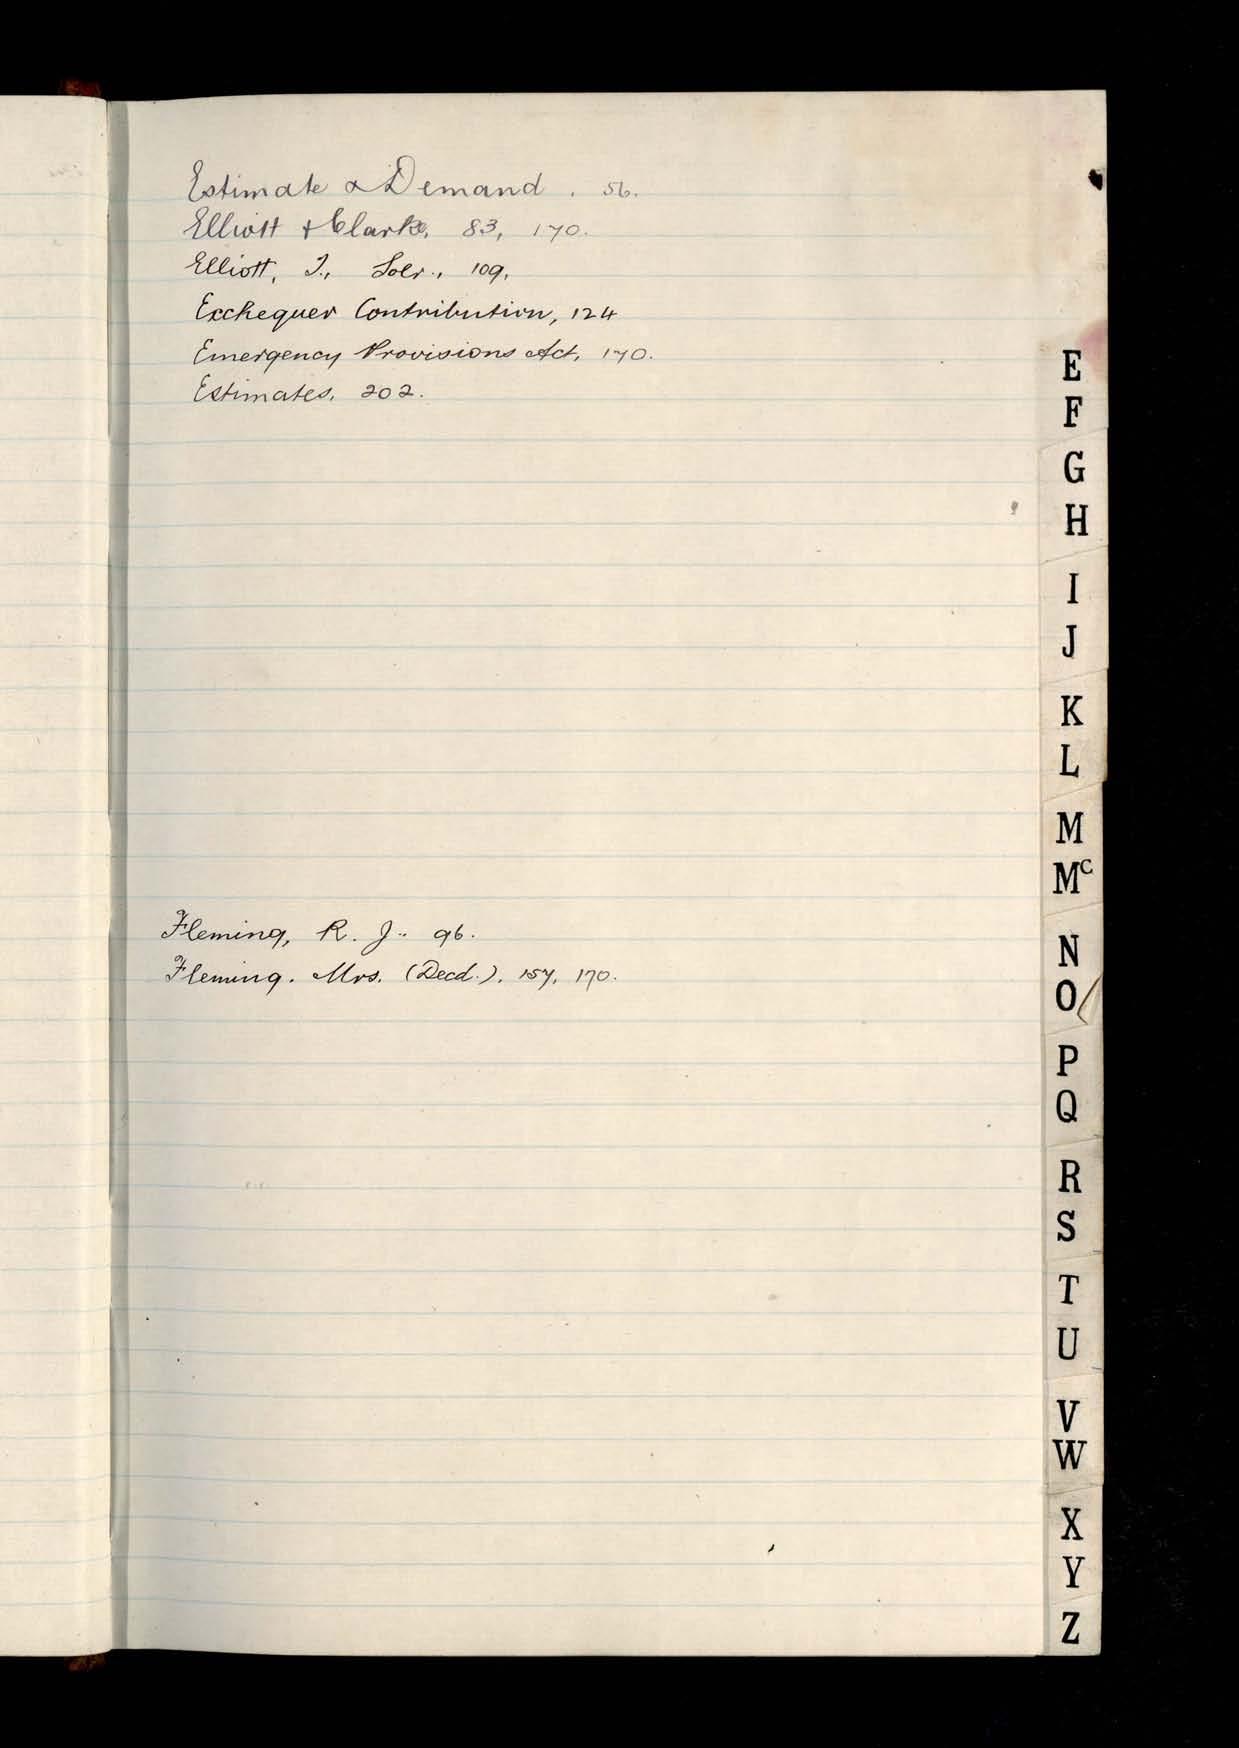 Estimate & Demand. 56.
Elliott & Clarke, 83, 170.
Elliott, J., Solr., 109,
Exchequer Contribution, 124
Emergency Provisions Act, 170.
Estimates, 202.
Fleming, R. J.. 96.
Fleming. Mrs. (Decd.), 157, 170.
E
F
G
H
I
J
K
L
M
Mc
N
O
P
Q
R
S
T
U
V
W
X
Y
Z